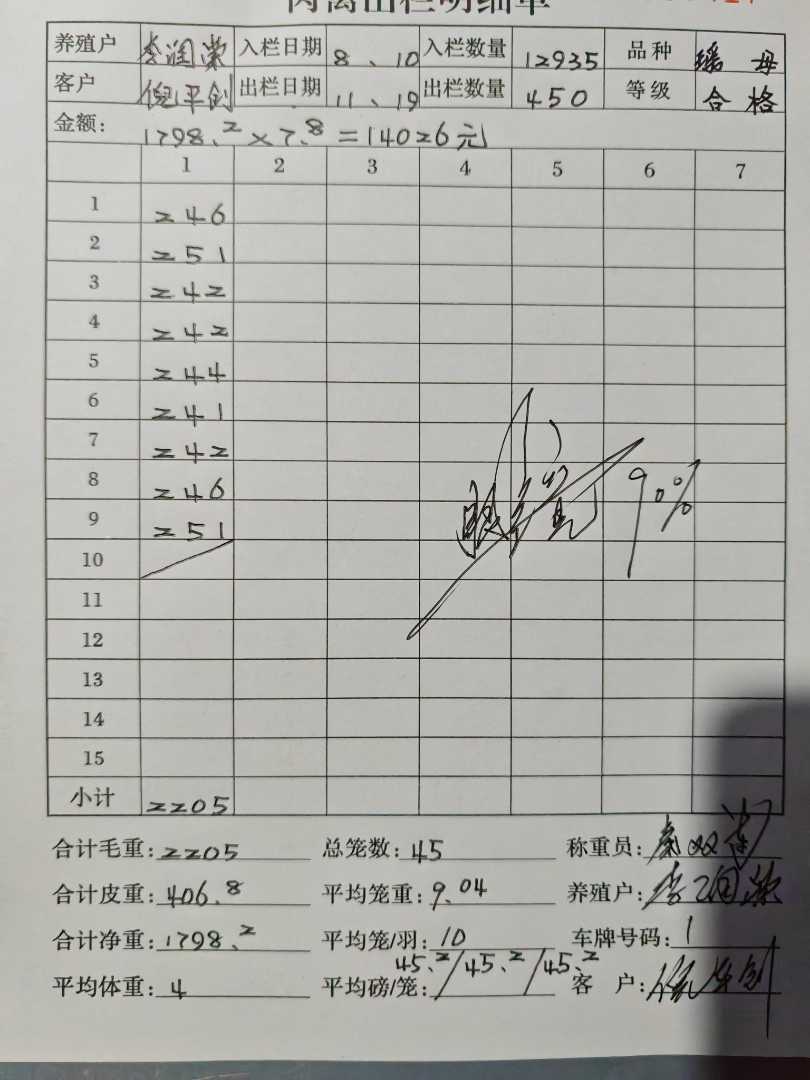 肉禽出栏明细单
养殖户 李润荣 入栏日期 8、10 入栏数量 12935 品种 瑶母
客户 倪平创 出栏日期 11、19 出栏数量 450 等级 合格
金额: 1798.2×7.8=14026元
1 2 3 4 5 6 7
1 246
2 251
3 242
4 242
5 244
6 241
7 242
8 246
9 251
90%
10
11
12
13
14
15
小计 2205
合计毛重: 2205 总笼数: 45 称重员:
合计皮重: 406.8 平均笼重: 9.04 养殖户: 李润荣
合计净重: 1798.2 平均笼/羽: 10 车牌号码: 1
平均体重: 4 平均磅/笼: 45.2/45.2/45.2 客户: